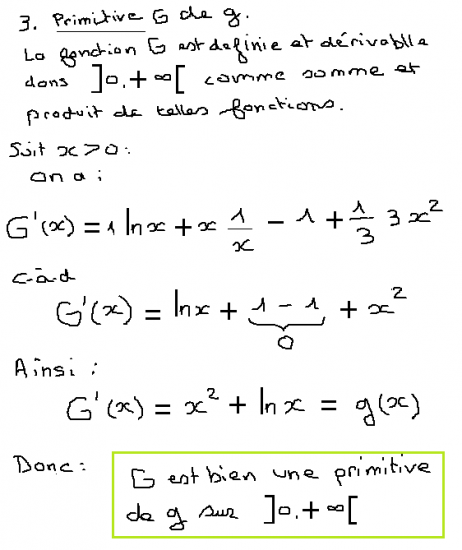 3. Primitive G de g.
La fonction G est definie et dérivablle
dans ]0.+∞[ comme somme et
produit de telles fonctions.
Soit x>0:
on a:
G'(x) = 1 ln x + x 1/x - 1 + 1/3 3x²
càd
G'(x) = ln x + 1 - 1 + x²
0
Ainsi :
G'(x) = x² + ln x = g(x)
Donc : G est bien une primitive
de g sur ]0.+∞[